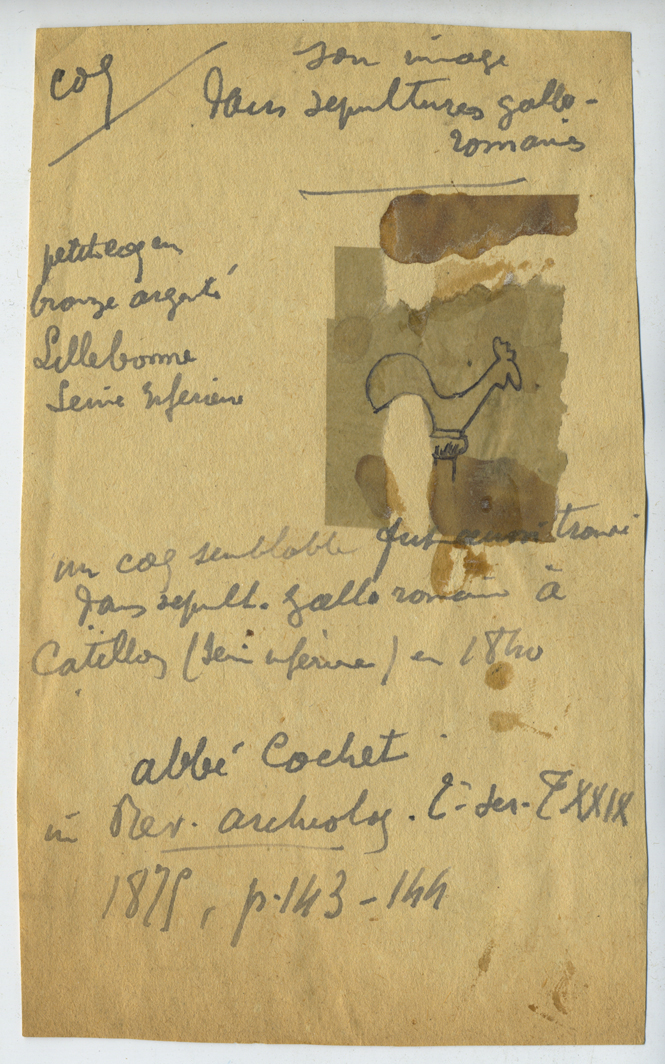 coq
son image
dans sepultures gallo-
romaines
petit coq en
bronze argenté
Lillebonne
Seine Inferieure
un coq semblable fut aussi trouvé
dans sepult. Gallo romaine à
Catillon (Seine inférieure) en 1840
abbé Cochet
in Rev. archeolog. 2e ser. T XXIX
1875, p. 143-144